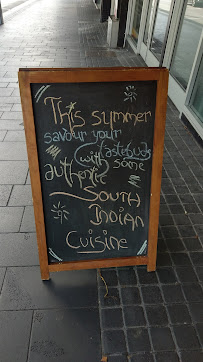 This summer
savour your tastebuds
with some
authentic
South
Indian
Cuisine